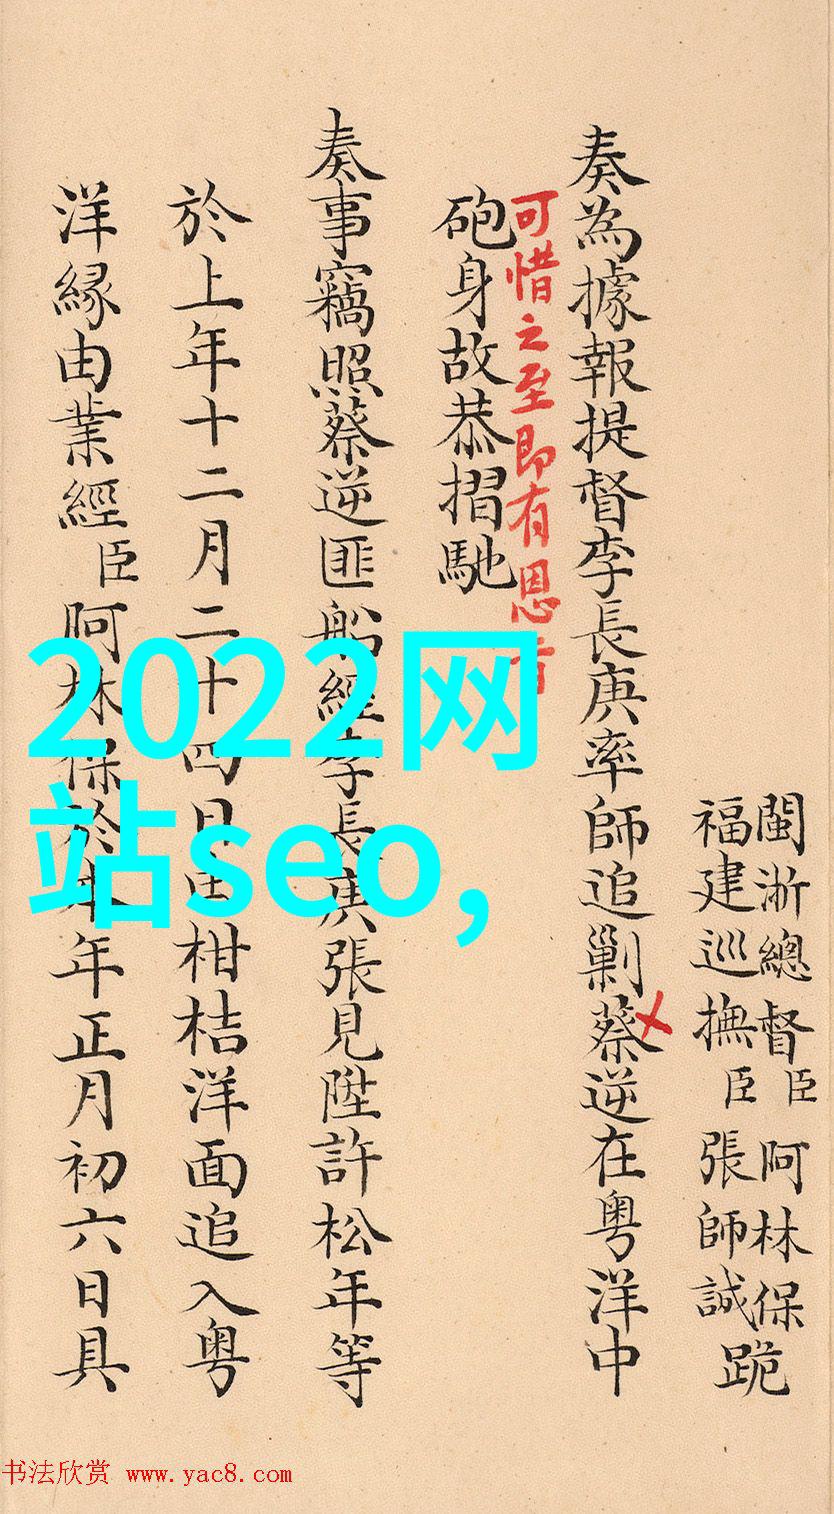 閩浙總督臣阿林保
福建巡撫臣張師誠跪
奏為據報提督李長庚率師追剿蔡逆在粵洋中
可惜之至即有恩旨
砲身故恭摺馳
奏事竊照蔡逆匪船經李長庚張見陞許松年等
於上年十二月二十四日由柑桔洋面追入粵
洋緣由業經臣阿林保於本年正月初六日具
2022网
站seo,
书法欣赏 www.yac8.com